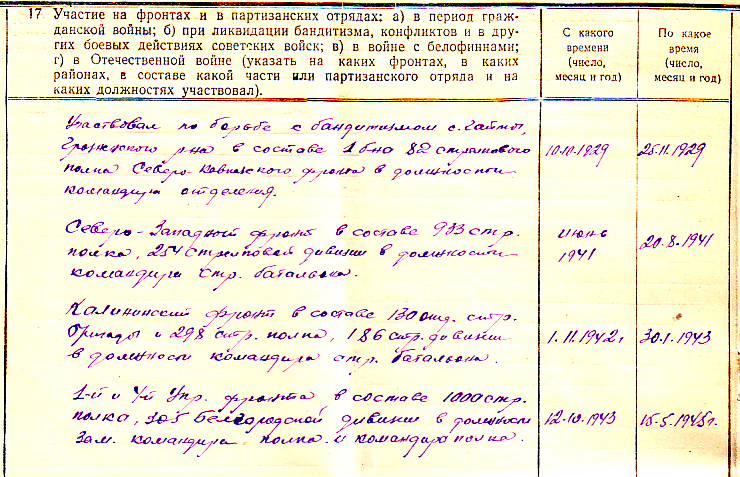 17. Участие на фронтах и в партизанских отрядах: а) в период граж-
данской войны; б) при ликвидации бандитизма, конфликтов и в дру-
гих боевых действиях советских войск; в) в войне с белофиннами;
г) в Отечественной войне (указать на каких фронтах, в каких
районах, в составе какой части или партизанского отряда и на
каких должностях участвовал).
С какого
времени
(число,
месяц и год)
По какое
время
(число,
месяц и год)
Участвовал по борьбе с бандитизмом с.
р-на в составе 1 б-на 82 стрелкового
полка Северо-Кавказского фронта в должности
командира отделения.
10.10.1929
25.11.1929
Северо-Западный фронт в составе 933 стр.
полка, 254 стрелковой дивизии в должности
командира стр. батальона.
июнь
1941
20.8.1941
Калининский фронт в составе 130 отд. стр.
бригады и 298 стр. полка, 186 стр. дивизии
в должности командира стр. батальона.
1.11.1942г
30.1.1943
1-й и 4й Укр. фронта в составе 1000 стр.
полка, 305 Белгородской дивизии в должности
Зам. командира полка и командира полка.
12.10.1943
15.5.1945г.